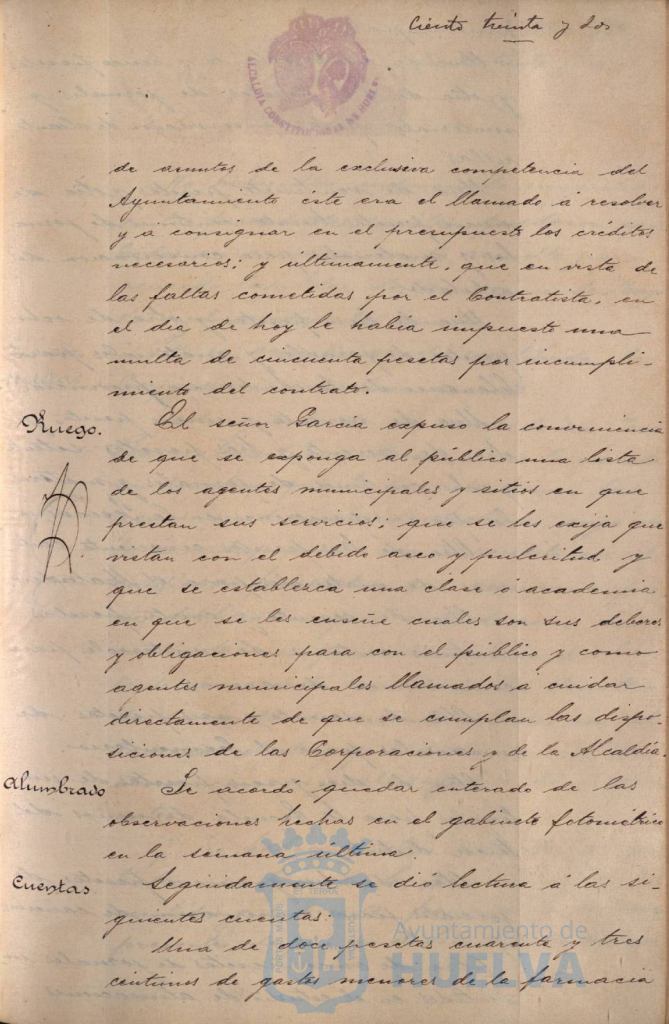 Ciento treinta y dos
ALCALDIA CONSTITUCIONAL DE HUELVA
de asuntos de la exclusiva competencia del
Ayuntamiento éste era el llamado á resolver
y á consignar en el presupuesto los créditos
necesarios; y últimamente, que en vista de
las faltas cometidas por el Contratista, en
el dia de hoy le habia impuesto una
multa de cincuenta pesetas por incumpli-
miento del contrato.
Ruego. El señor Garcia expuso la conveniencia
de que se exponga al público una lista
de los agentes municipales y sitios en que
prestan sus servicios; que se les exija que
vistan con el debido aseo y pulcritud y
que se establezca una clase ó academia
en que se les enseñe cuales son sus deberes
y obligaciones para con el público y como
agentes municipales llamados á cuidar
directamente de que se cumplan las dispo-
siciones de las Corporaciones y de la Alcaldía.
Alumbrado Se acordó quedar enterado de las
observaciones hechas en el gabinete fotométrico
en la semana última.
Cuentas Seguidamente se dió lectura á las si-
guientes cuentas:
Una de doce pesetas cuarenta y tres
centimos de gastos menores de la farmacia
Ayuntamiento de
HUELVA